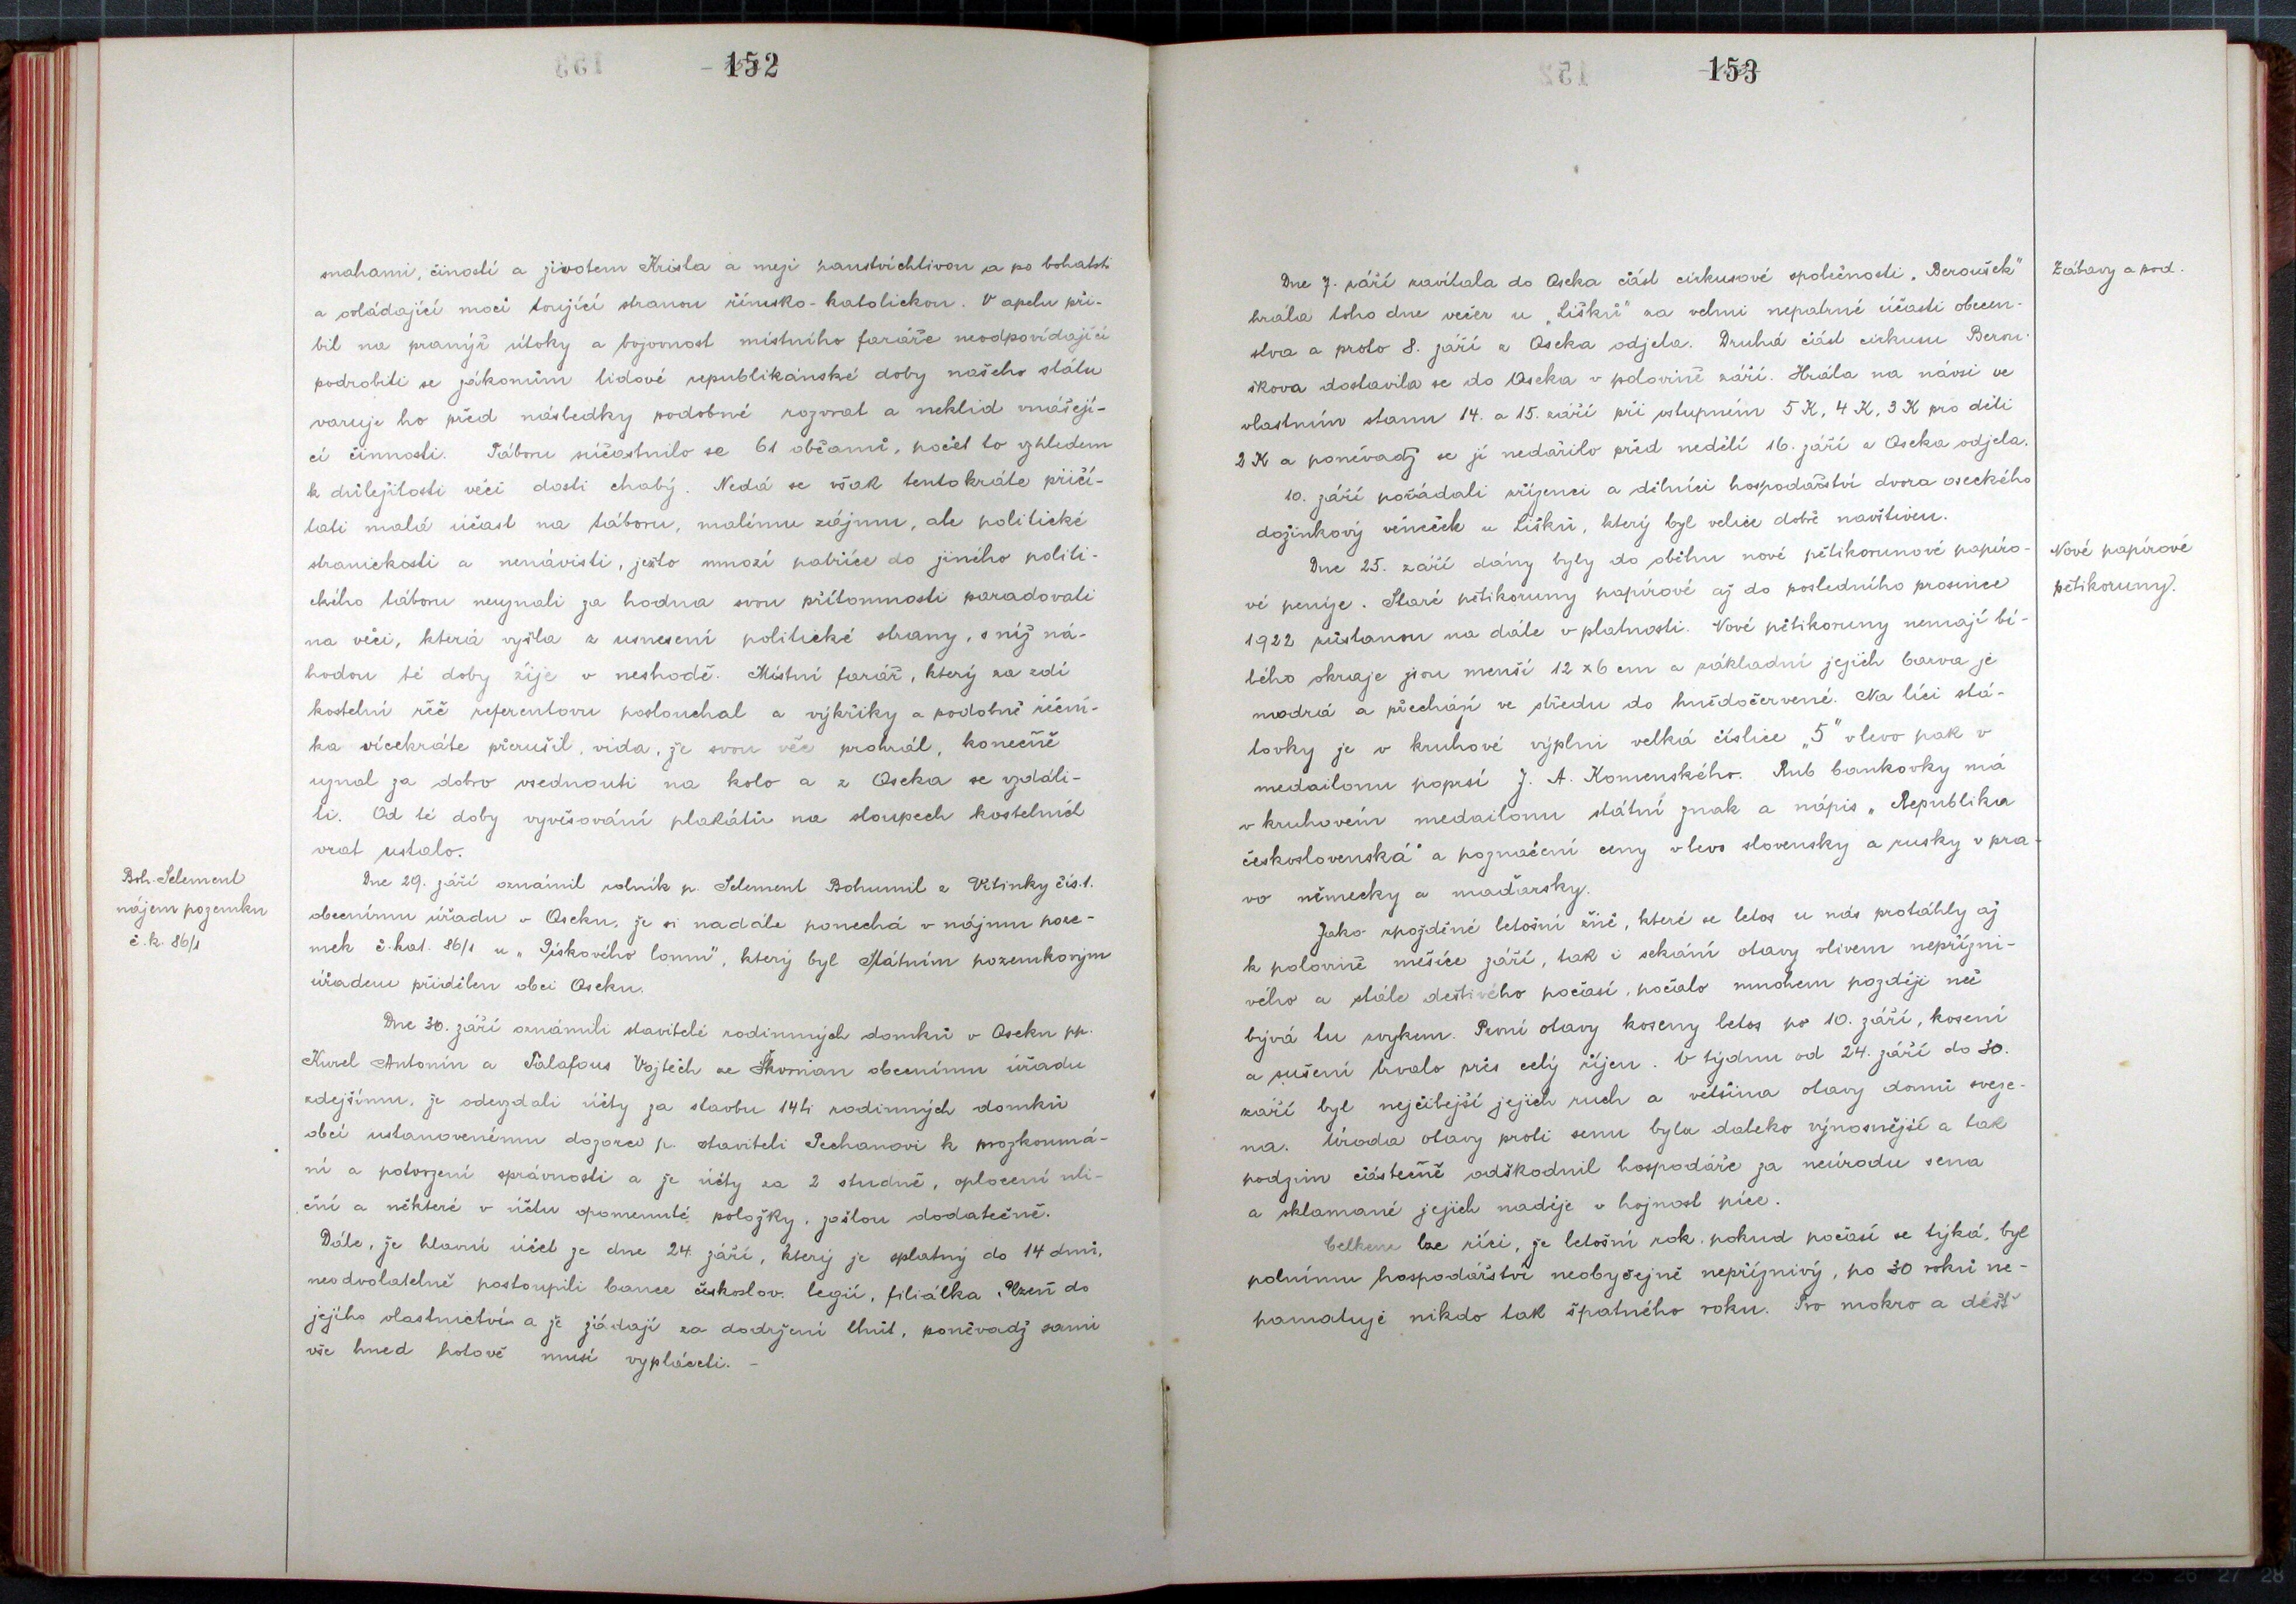 152
snahami, čiností a životem Krista a mezi panstvíchtivou a po bohatství
a ovládající moci toužící stranou římsko-katolickou. V apelu při-
bil na pranýř útoky a bojovnost místního faráře neodpovídající
podrobiti se zákonům lidové republikánské doby našeho státu
varuje ho před následky podobné rozvrat a neklid vnášejí-
cí činnosti. Táboru súčastnilo se 61 občanů, počet to vzhledem
k důležitosti věci dosti chabý. Nedá se však tentokráte přičí-
tati malá účast na táboru, malému zájmu, ale politické
stranickosti a nenávisti, ježto mnozí patříce do jiného politi-
ckého táboru neuznali za hodna svou přítomností paradovati
na věci, která vyšla z usnesení politické strany, s níž ná-
hodou té doby žije v neshodě. Místní farář, který za zdí
kostelní řěč referentovu poslouchal a výkřiky a podobně řéční-
ka vícekráte přerušil, vida, že svou věc prohrál, konečně
uznal za dobro vsednouti na kolo a z Oseka se vzdáli-
ti. Od té doby vyvěšování plakátů na sloupech kostelních
vrat ustalo.
Boh. Selement
nájem pozemku
č. k. 86/1
Dne 29. září oznámil rolník p. Selement Bohumil z Vitinky čís. 1.
obecnímu úřadu v Oseku, že si nadále ponechá v nájmu poze-
mek č. kat. 86/1 u „Pískového lomu", který byl Státním pozemkovým
úřadem přidělen obci Oseku.
Dne 30. září oznámili stavitelé rodinných domků v Oseku pp.
Kurel Antonín a Talafous Vojtěch ze Škvrňan obecnímu úřadu
zdejšímu, že odevzdali účty za stavbu 14ti rodinných domků
obcí ustanovenému dozorci p. staviteli Pechanovi k prozkoumá-
ní a potvrzení správnosti a že účty za 2 studně, oplocení uli-
ční a některé v účtu opomenuté položky, zašlou dodatečně.
Dále, že hlavní účet ze dne 24. září, který je splatný do 14 dnů,
neodvolatelně postoupili bance českoslov. legií, filiálka Plzeň do
jejího vlastnictví a že žádají za dodržení lhůt, poněvadž sami
vše hned hotově musí vypláceti. -
153
Zábavy a pod.
Dne 7. září zavítala do Oseka část cirkusové společnosti „Beroušek"
hrála toho dne večer u „Lišků" za velmi nepatrné účasti obecen-
stva a proto 8. září z Oseka odjela. Druhá část cirkusu Berou-
škova dostavila se do Oseka v polovině září. Hrála na návsi ve
vlastním stanu 14. a 15. září při vstupném 5 K, 4 K, 3 K pro děti
2 K a poněvadž se jí nedařilo před nedělí 16. září z Oseka odjela.
10. září pořádali zřízenci a dělníci hospodářství dvora oseckého
dožinkový věneček u Lišků, který byl velice dobře navštíven.
Nové papírové
pětikoruny.
Dne 25. září dány byly do oběhu nové pětikorunové papíro-
vé peníze. Staré pětikoruny papírové až do posledního prosince
1922 zůstanou na dále v platnosti. Nové pětikoruny nemají bí-
lého okraje jsou menší 12 x 6 cm a základní jejich barva je
modrá a přechází ve středu do hnědočervené. Na líci stá-
tovky je v kruhové výplni velká číslice „5" vlevo pak v
medailonu poprsí J. A. Komenského. Rub bankovky má
v kruhovém medailonu státní znak a nápis „Republika
československá" a poznačení ceny vlevo slovensky a rusky v pra-
vo německy a maďarsky.
Jako zpožděné letošní žně, které se letos u nás protáhly až
k polovině měsíce září, tak i sekání otavy vlivem nepřízni-
vého a stále deštivého počasí, počalo mnohem později než
bývá tu zvykem. První otavy koseny letos po 10. září, kosení
a sušení trvalo přes celý říjen. V týdnu od 24. září do 30.
září byl nejčilejší jejich ruch a většina otavy domů sveze-
na. Úroda otavy proti senu byla daleko výnosnější a tak
podzim částečně odškodnil hospodáře za neúrodu sena
a sklamané jejich naděje v hojnost píce.
Celkem lze říci, že letošní rok, pokud počasí se týká, byl
polnímu hospodářství neobyčejně nepříznivý, po 30 roků ne-
pamatuje nikdo tak špatného roku. Pro mokro a déšť